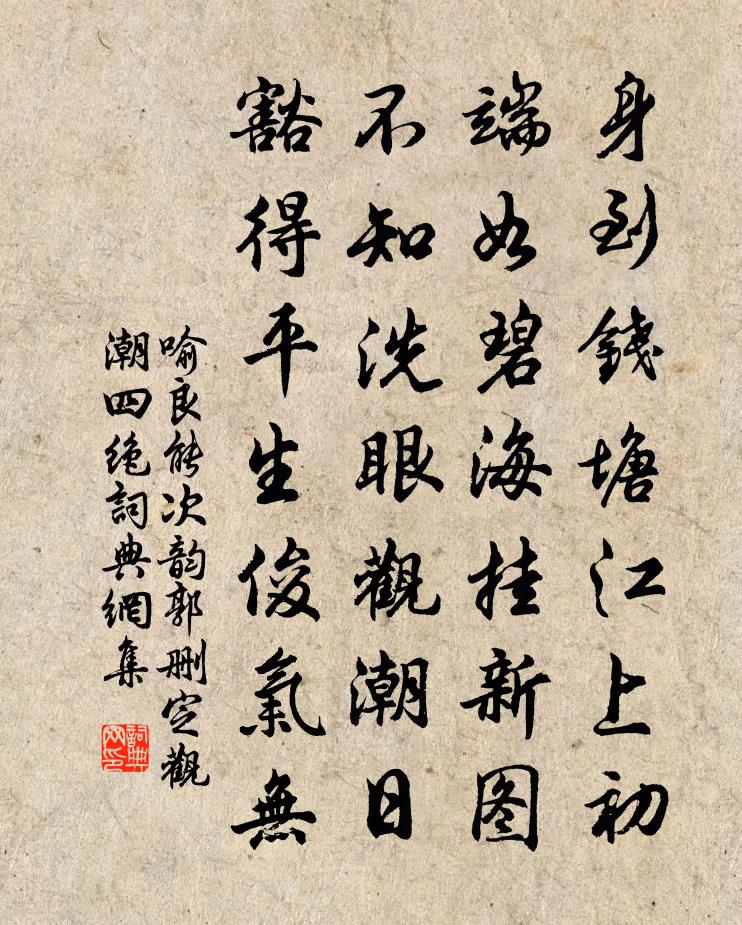 身到錢塘江上初
端如碧海挂新图
不知洗眼觀潮日
豁得平生俊氣無
喻良能次韵郭删定觀
潮四绝詞典網集
詞典网印